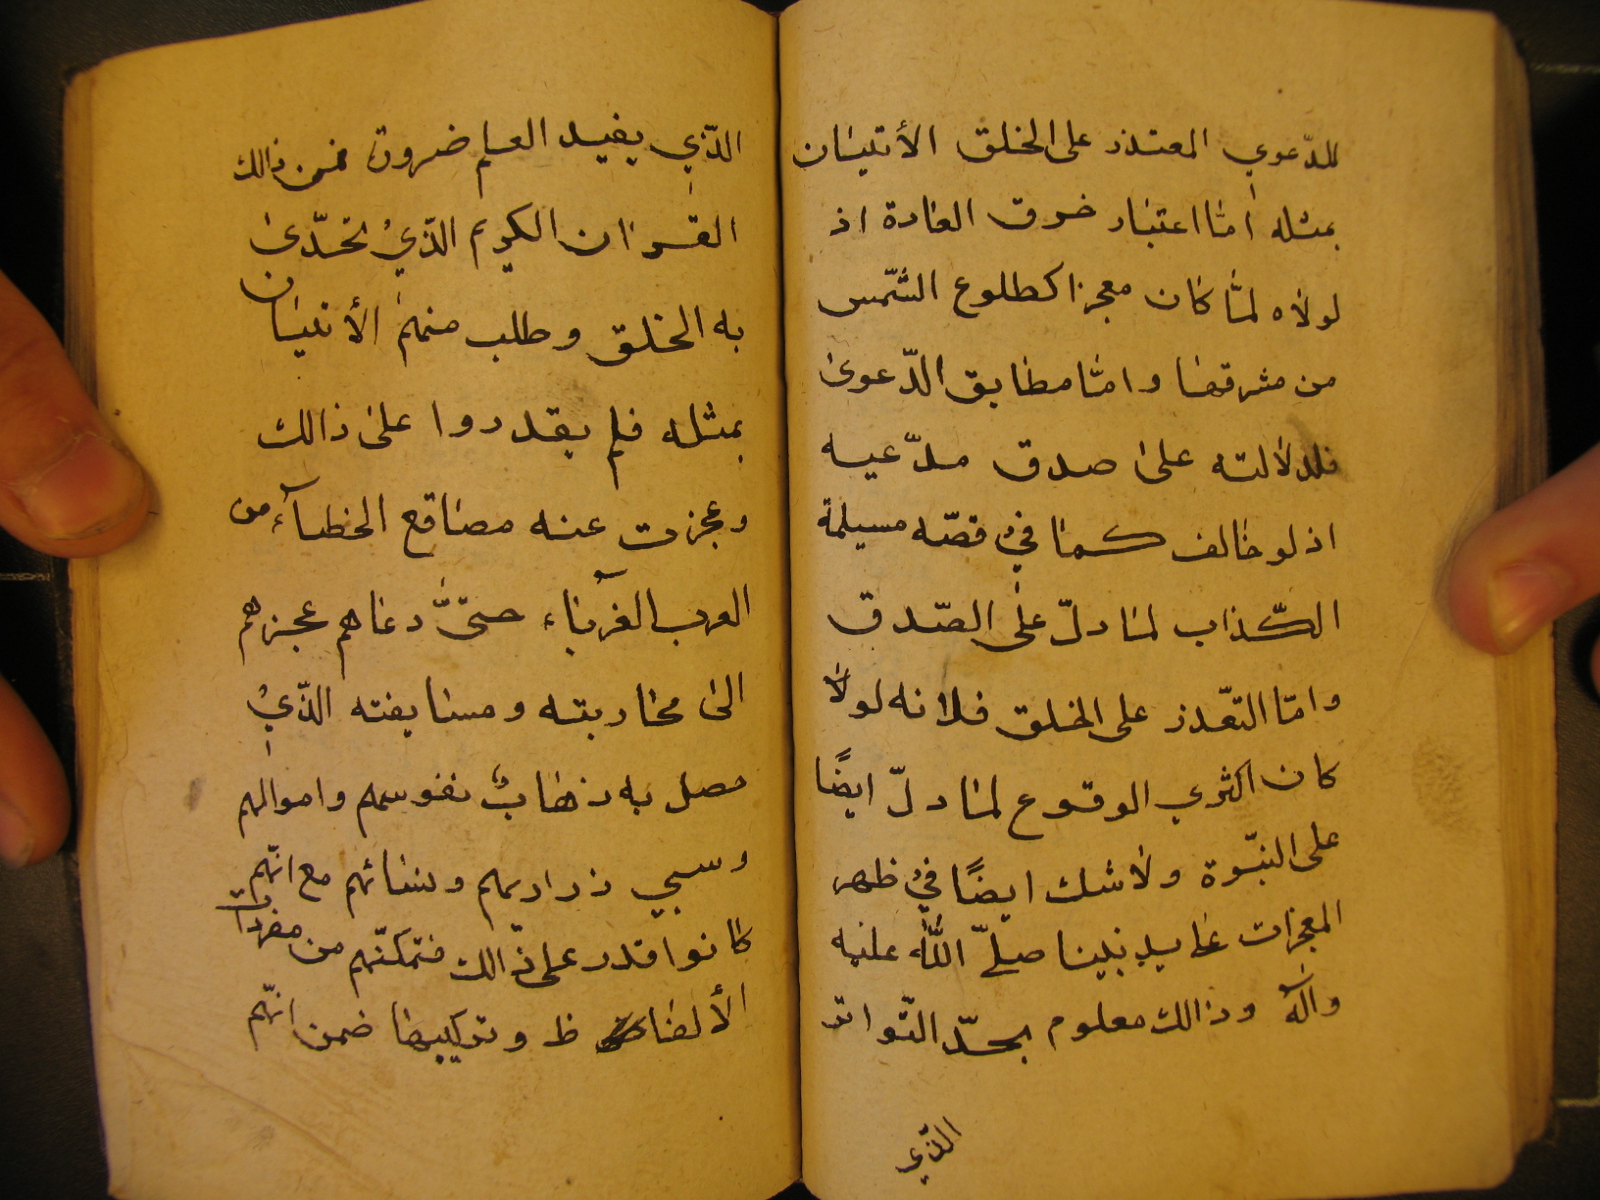 للدّعوي المعتذر على الخلق الأتيان
بمثله امّا اعتبار خرق العادة اذ
لولاه لمّا كان معجزا كطلوع الشّمس
من مشرقها وامّا مطابق الدّعوى
فلدلالته على صدق مدّعيه
اذ لو خالف كما في قصّه مسيلمة
الكّذاب لما دلّ على الصّدق
وامّا التعّذر على الخلق فلانه لولا
كان اكثري الوقوع لما دلّ ايضًا
على النبّوة ولا شك ايضًا في ظهر
المعجزات على يد نبينا صلّى اللّٰه عليه
وآله وذالك معلوم بحدّ التّواتر
الذّي
الذّي يفيد العلم ضرورة فمن ذالك
القران الكريم الذّي تحّدى
به الخلق وطلب منهم الأتيان
بمثله فلم يقدروا على ذالك
وعجزت عنه مصاقع الخطبآء من
العرب العربآء حتىّ دعاهم عجزهم
الى محاربته ومسايفته الذّي
حصل به ذهاب نفوسهم واموالهم
وسبي ذراريهم ونسائهم مع انّهم
كانوا قدر على ذّالك فتمكنّهم من مفردات
الألفاظ وتركيبها ضمن انّهم